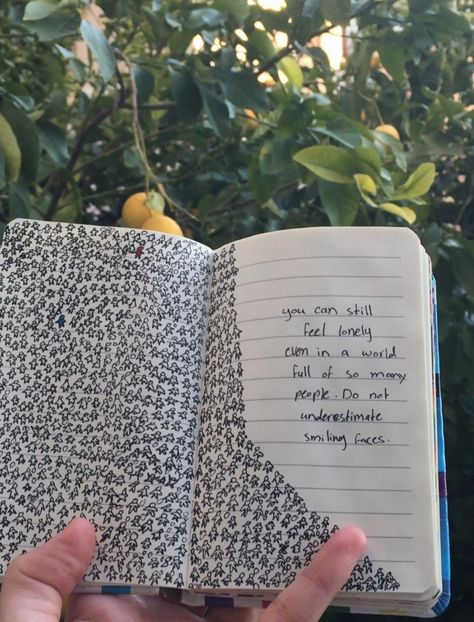 you can still
feel lonely
even in a world
full of so many
people. Do not
underestimate
smiling faces.